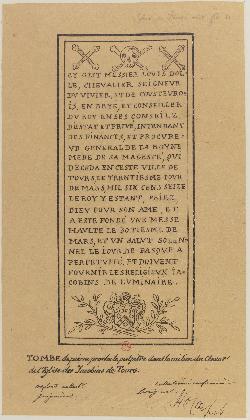 CY GIST MESSIRE LOUIS DOL
LE, CHEVALIER SEIGNEUR
DU VIVIER, ET DE COUSTEVRO
IS, EN BRYE, ET CONSEILLER
DU ROY EN SES CONSEILZ
DESTAT ET PRIVÉ, INTENDANT
DES FINANCES, ET PROCUREU
VR GENERAL DE LA ROYNE
MERE DE SA MAGESTÉ, QUI
DÉCEDA EN CESTE VILLE DE
TOURS, LE TRENTIESME IOUR
DE MARS, MIL SIX CENS SEIZE
LE ROY Y ESTANT, PRIEZ
DIEU POUR SON AME, ET
A ESTÉ FONDÉ UNE MESSE
HAULTE LE 30 IESME DE
MARS, ET UN SALUT SOLEN
NEL LE IOUR DE PASQUE A
PERPETUITÉ, ET DOIVENT
FOURNIR LES RELIGIEUX IA
COBINS DE LUMINAIRE.
TOMBE de pierre proche le pulpitre dans le milieu du Chœur
de l'Eglise des Jacobins de Tours.